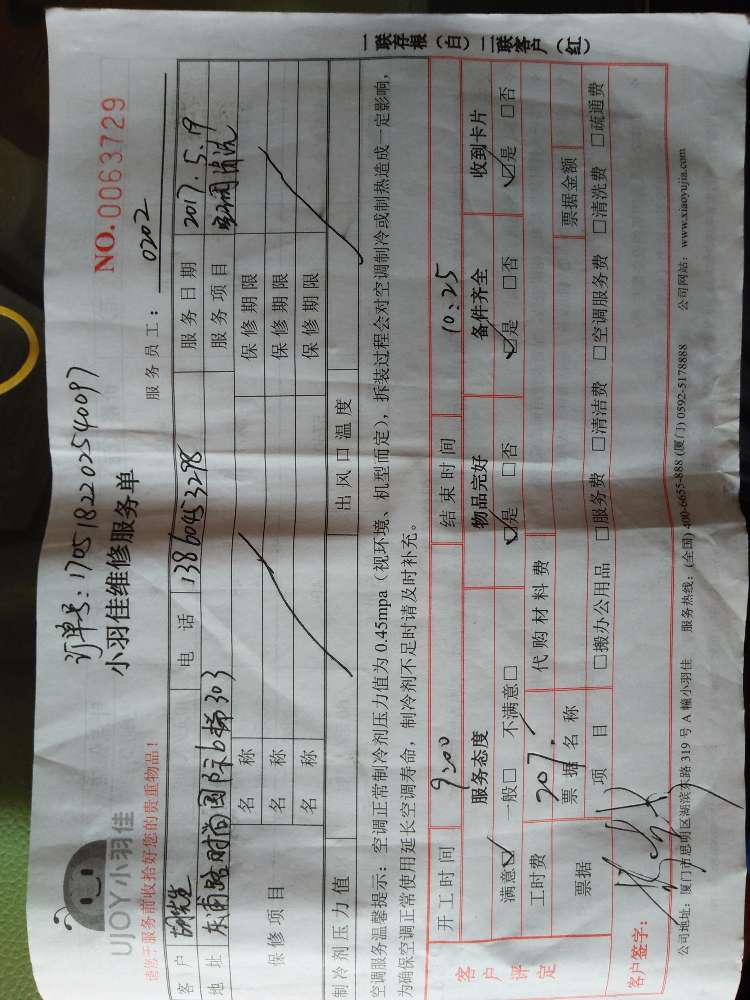 订单号：1705182202540097
NO. 0063729
UJOY小羽佳
小羽佳维修服务单
请您于服务前收拾好您的贵重物品！
服务员工： 0202
客户 胡先生 电话 13860453298 服务日期 2017.5.19
地址 东浦路时尚国际6梯303 服务项目 空调清洗
保修项目
名称 保修期限
名称 保修期限
名称 保修期限
制冷剂压力值 出风口温度
空调服务温馨提示：空调正常制冷剂压力值为 0.45mpa（视环境、机型而定），拆装过程会对空调制冷或制热造成一定影响，
为确保空调正常使用延长空调寿命，制冷剂不足时请及时补充。
客户评定
开工时间 9:00 结束时间 10:25
服务态度 物品完好 备件齐全 收到卡片
满意☑ 一般□ 不满意□ ☑是 □否 ☑是 □否 ☑是 □否
工时费 207. 代购材料费
票据 票据名称 票据金额
项目 □搬办公用品 □服务费 □清洁费 □空调服务费 □清洗费 □疏通费
客户签字：
公司地址：厦门市思明区湖滨东路 319 号 A 幢小羽佳 服务热线：(全国) 400-6655-888 (厦门) 0592-5178888 公司网站：www.xiaoyujia.com
一联存根（白）二联客户（红）